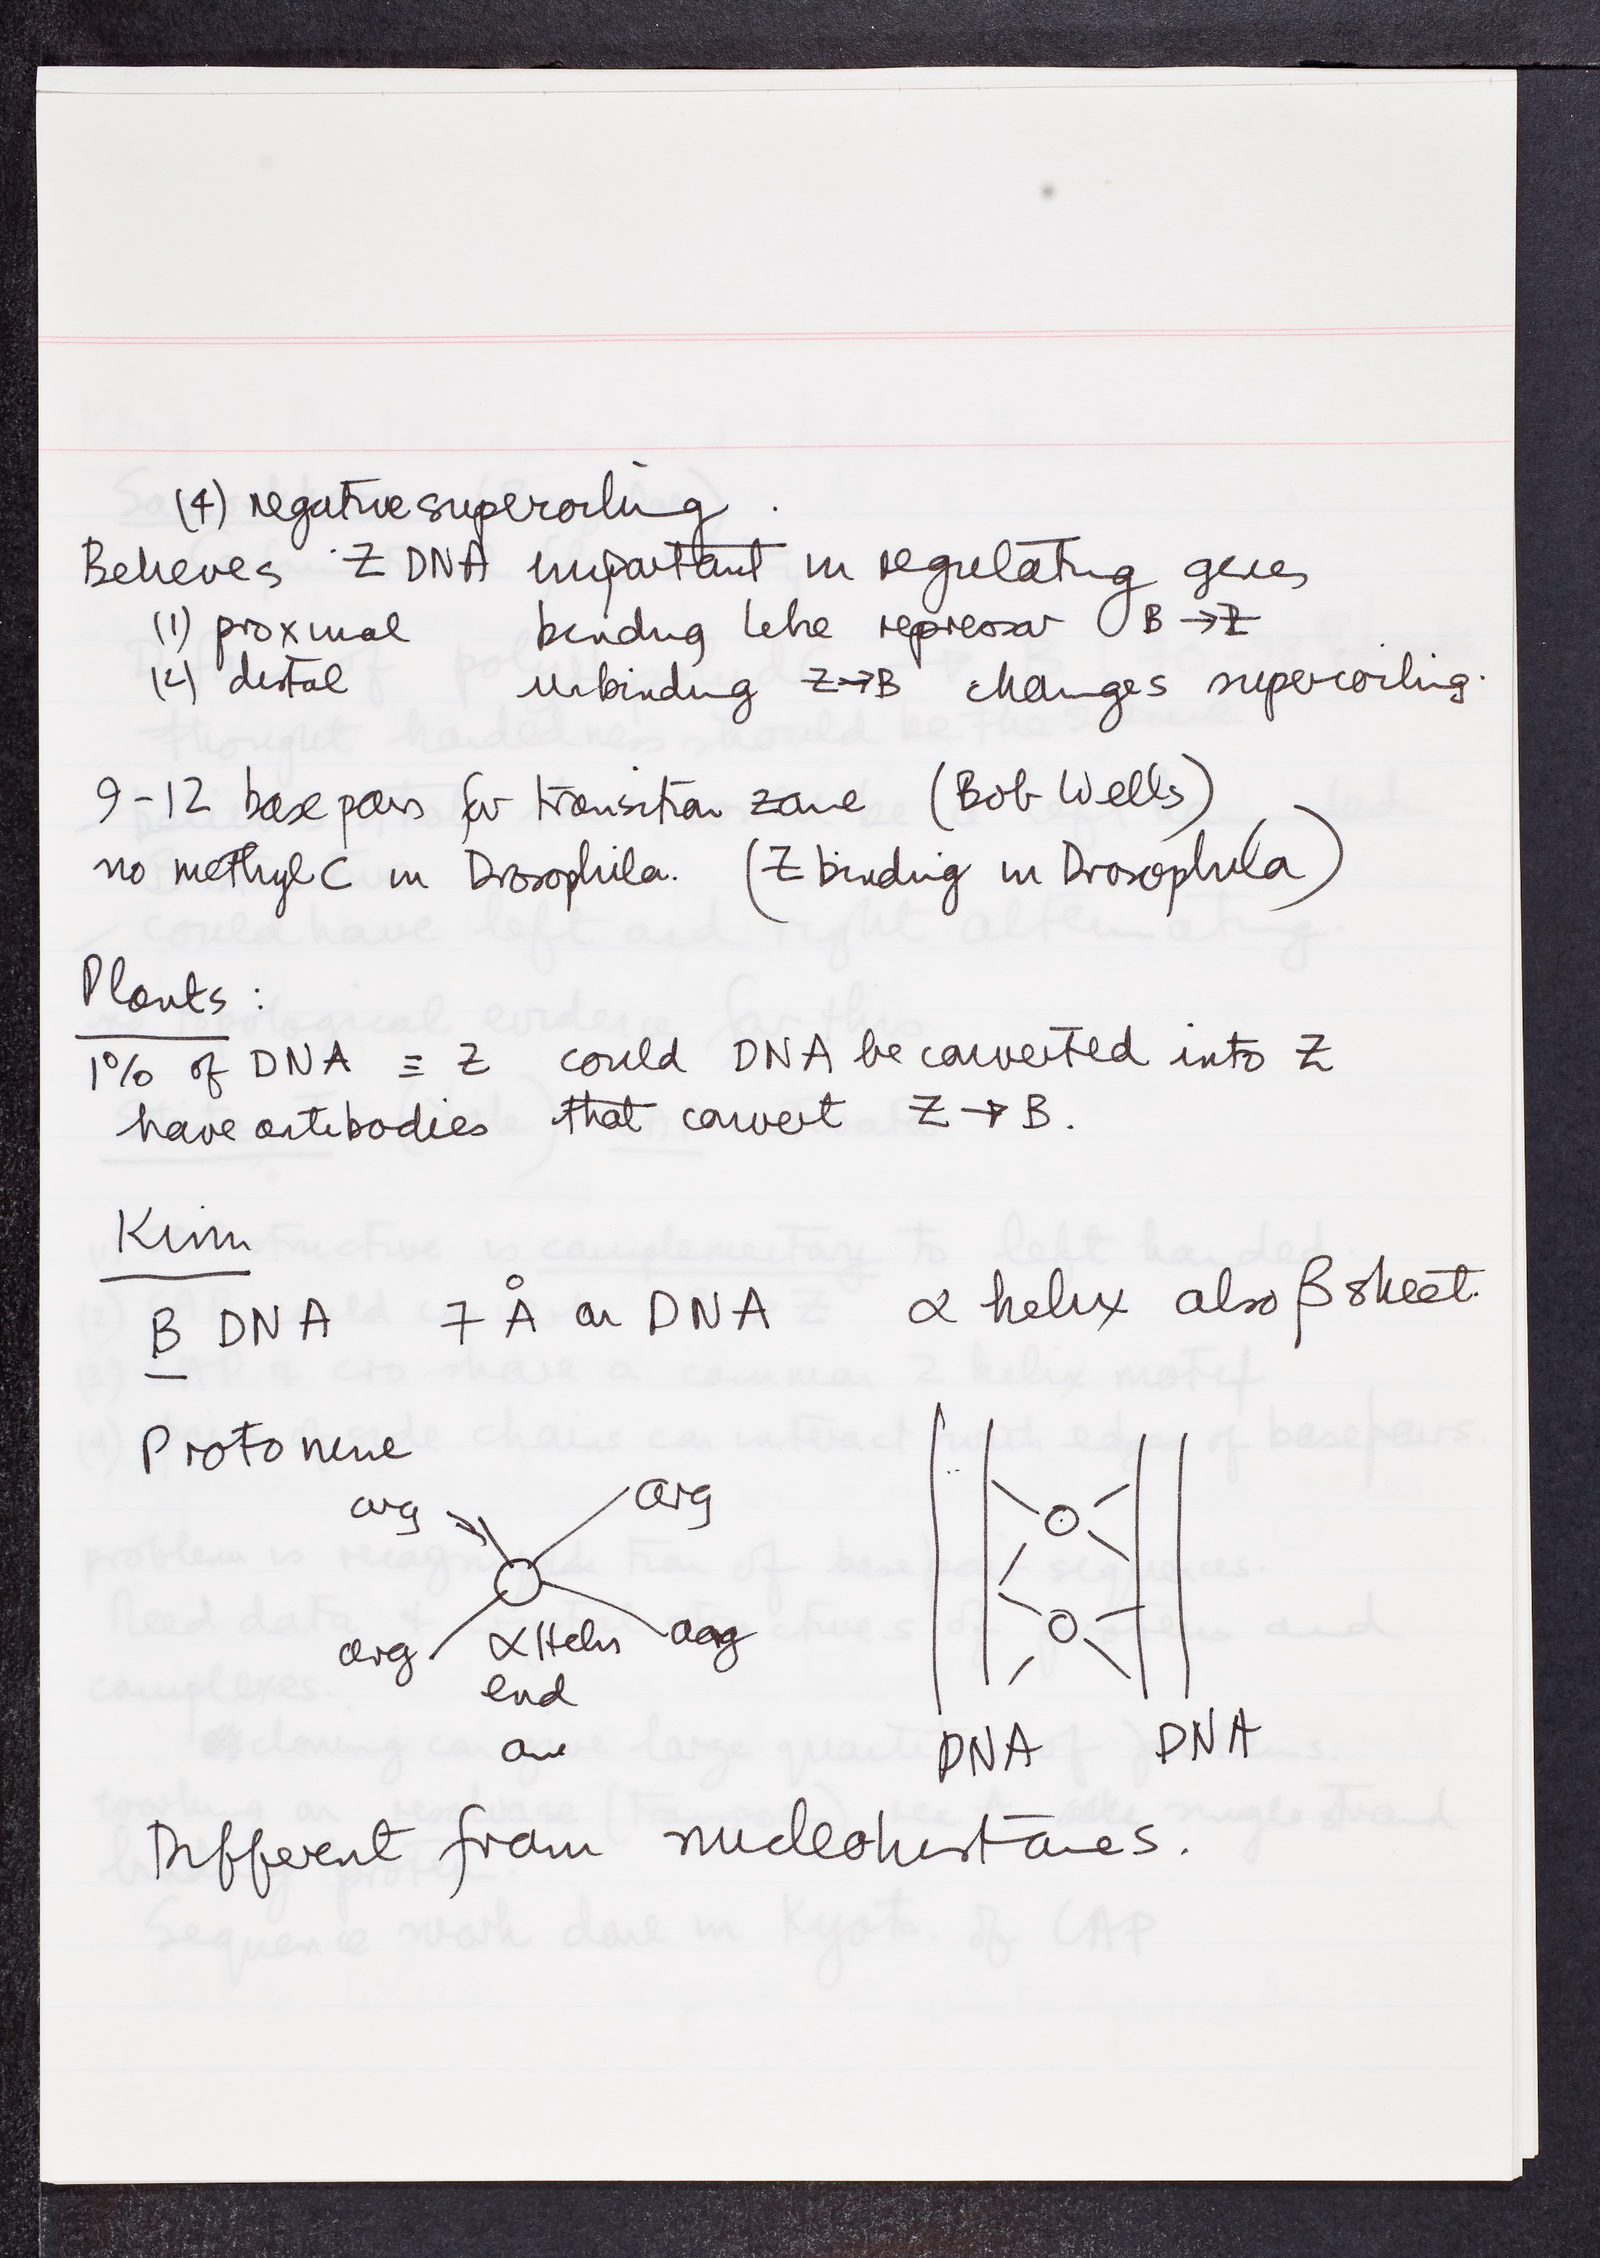 (4) negative supercoiling.
Believes Z DNA important in regulating genes
(1) proximal binding like repressor B → Z
(2) distal unbinding Z → B changes supercoiling.
9-12 base pairs for transition zone (Bob Wells)
no methyl C in Drosophila. (Z binding in Drosophila)
Plants:
1% of DNA ≡ Z could DNA be converted into Z
have antibodies that convert Z → B.
Kim
B DNA 7 Å on DNA α helix also β sheet.
Protomine
arg arg
arg α Helix arg
end
on
DNA DNA
Different from nucleohistones.